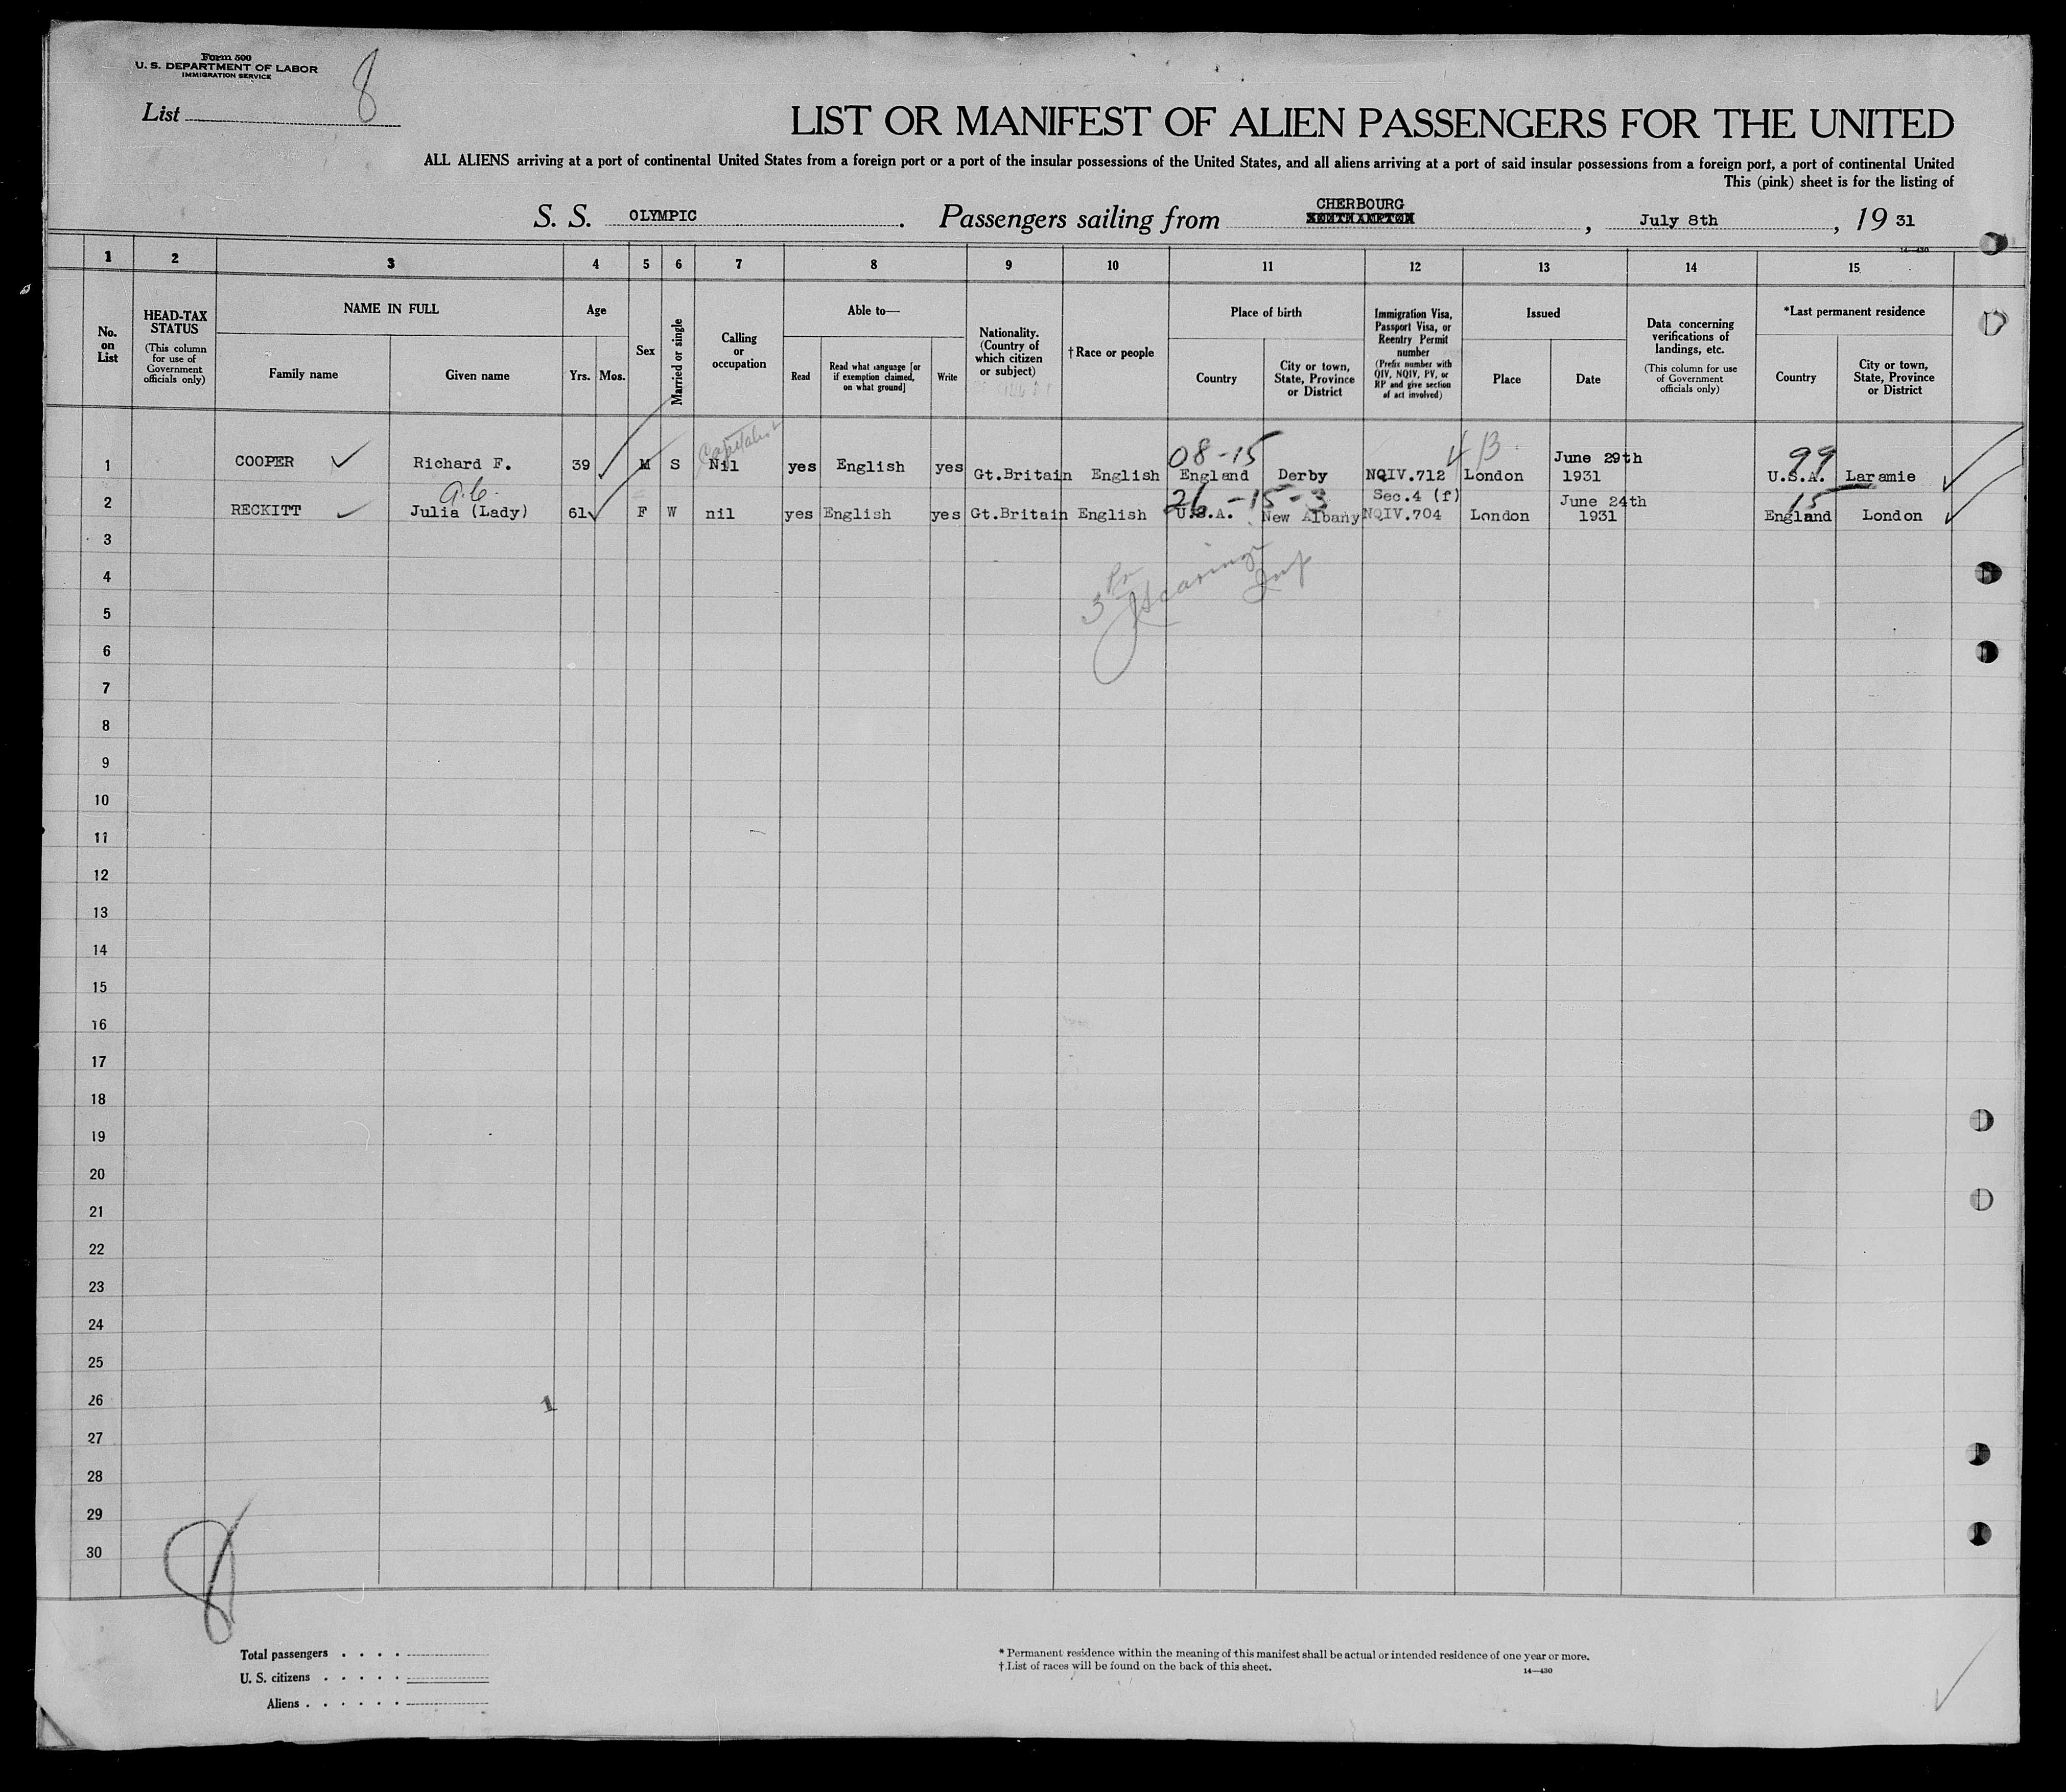 Form 500
U. S. DEPARTMENT OF LABOR
IMMIGRATION SERVICE
8
List
LIST OR MANIFEST OF ALIEN PASSENGERS FOR THE UNITED
ALL ALIENS arriving at a port of continental United States from a foreign port or a port of the insular possessions of the United States, and all aliens arriving at a port of said insular possessions from a foreign port, a port of continental United
This (pink) sheet is for the listing of
S. S. OLYMPIC. Passengers sailing from CHERBOURG SOUTHAMPTON, July 8th, 19 31
14—430
1 2 3 4 5 6 7 8 9 10 11 12 13 14 15
No. on List
HEAD-TAX STATUS (This column for use of Government officials only)
NAME IN FULL
Family name Given name
Age
Yrs. Mos.
Sex
Married or single
Calling or occupation
Able to—
Read Read what language [or if exemption claimed, on what ground] Write
Nationality. (Country of which citizen or subject)
†Race or people
Place of birth
Country City or town, State, Province or District
Immigration Visa, Passport Visa, or Reentry Permit number (Prefix number with QIV, NQIV, PV, or RP and give section of act involved)
Issued
Place Date
Data concerning verifications of landings, etc. (This column for use of Government officials only)
*Last permanent residence
Country City or town, State, Province or District
Capitalist 08-15 4 B 99
1 COOPER Richard F. 39 M S Nil yes English yes Gt.Britain English England Derby NQIV.712 London June 29th 1931 U.S.A. Laramie
26-15-3 Sec.4 (f) 15
2 RECKITT Julia (Lady) 61 F W nil yes English yes Gt.Britain English U.S.A. New Albany NQIV.704 London June 24th 1931 England London
3
4
5
6
7
8
9
10
11
12
13
14
15
16
17
18
19
20
21
22
23
24
25
26 1
27
28
29
30
8
Total passengers
U. S. citizens
Aliens
* Permanent residence within the meaning of this manifest shall be actual or intended residence of one year or more.
† List of races will be found on the back of this sheet.
14—430